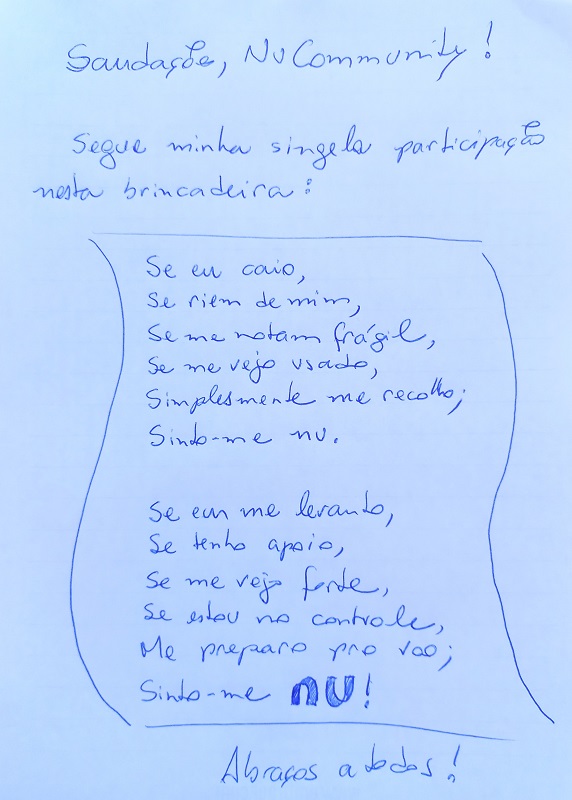 Saudações, NuCommunity!
Segue minha singela participação
nesta brincadeira:
Se eu caio,
Se riem de mim,
Se me notam frágil,
Se me vejo usado,
Simplesmente me recolho;
Sinto-me nu.
Se eu me levanto,
Se tenho apoio,
Se me vejo forte,
Se estou no controle,
Me preparo pro voo;
Sinto-me nu!
Abraços a todos!